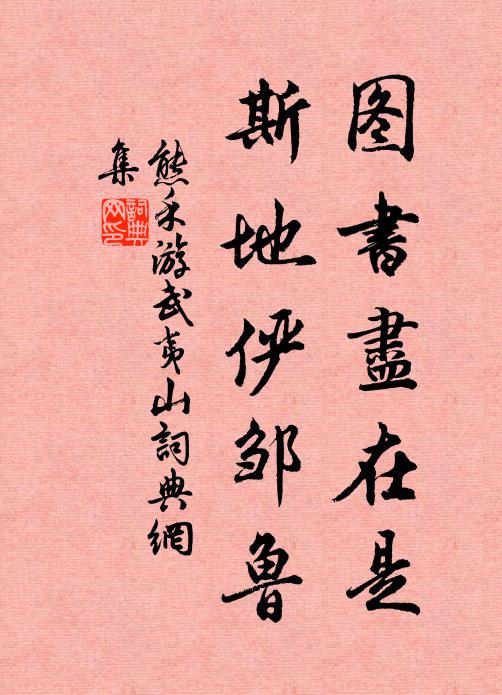 图書盡在是
斯地俨邹魯
熊禾游武夷山詞典網
集
詞典
网印